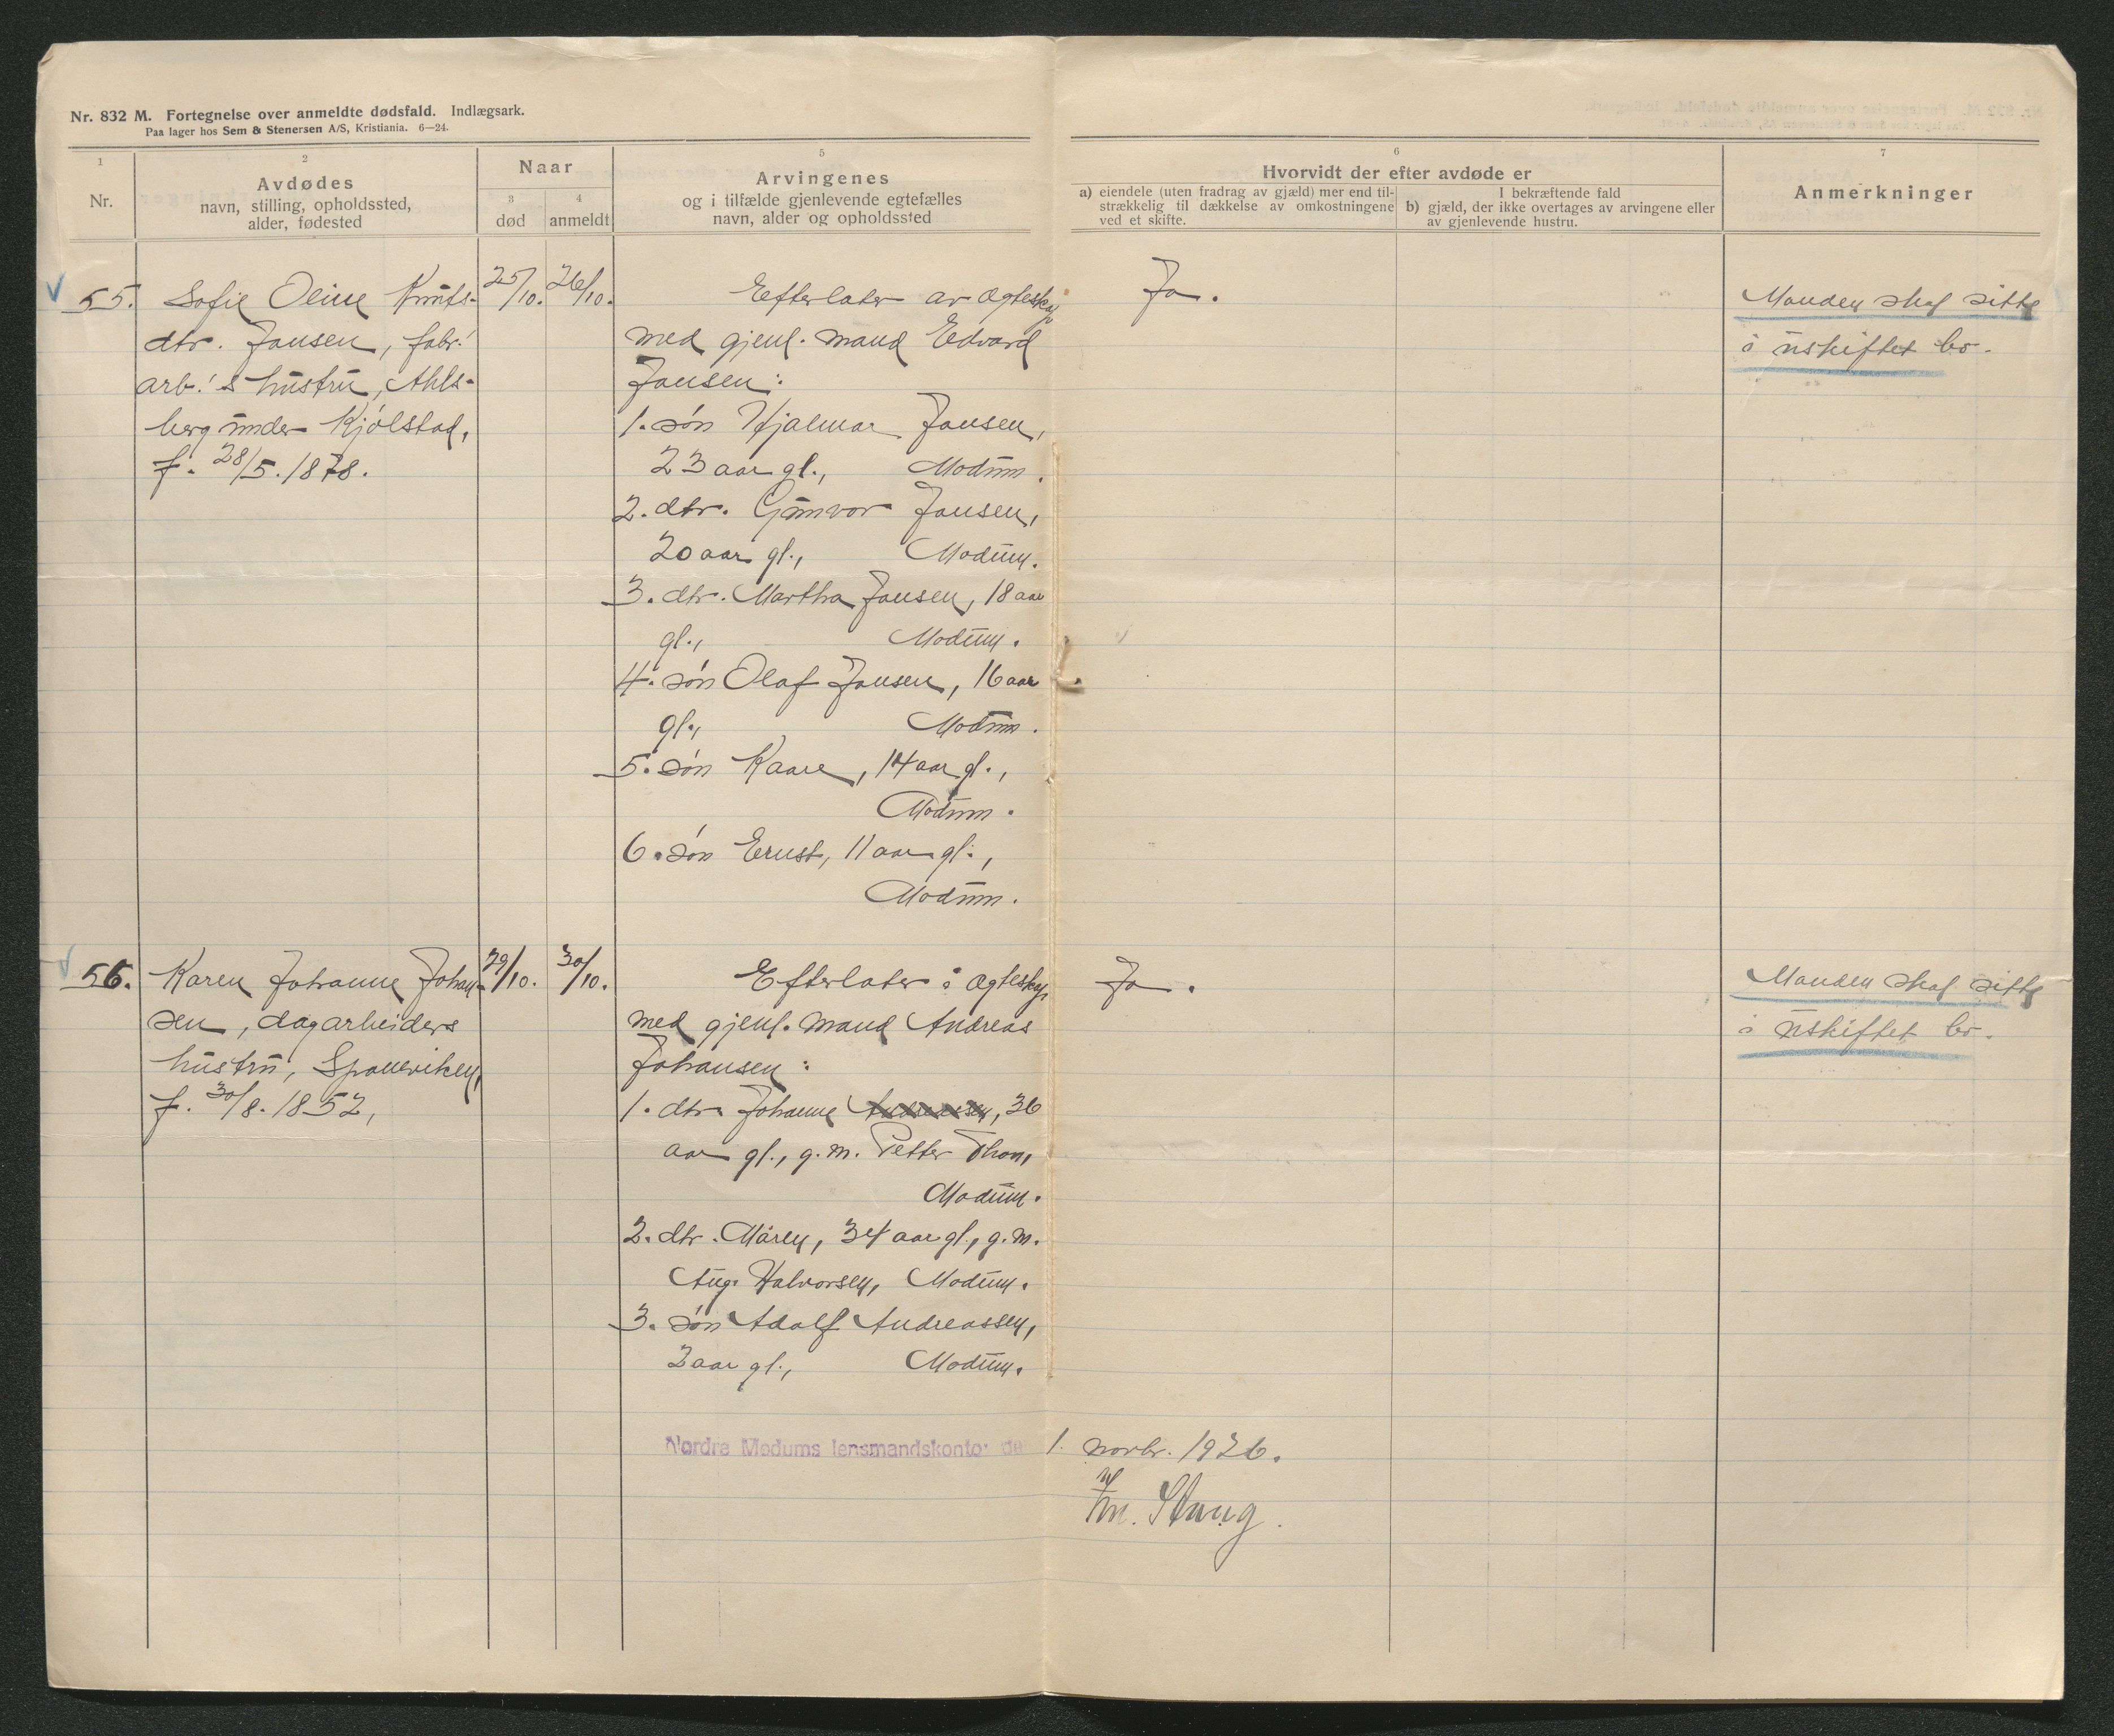 Nr. 832 M. Fortegnelse over anmeldte dødsfald. Indlægsark.
Paa lager hos Sem & Stenersen A/S, Kristiania. 6—24.
1
Nr.
2
Avdødes
navn, stilling, opholdssted,
alder, fødested
Naar
3
død
4
anmeldt
5
Arvingenes
og i tilfælde gjenlevende egtefælles
navn, alder og opholdssted
6
Hvorvidt der efter avdøde er
a) eiendele (uten fradrag av gjæld) mer end til-
strækkelig til dækkelse av omkostningene
ved et skifte.
I bekræftende fald
b) gjæld, der ikke overtages av arvingene eller
av gjenlevende hustru.
7
Anmerkninger
55.
Sofie Oline Knuts-
dtr. Jansen, fabr.
arb.'s hustru, Ahls-
berg under Kjølstad,
f. 28/5. 1878.
25/10.
26/10.
Efterlater av ægteskap
med gjenl. mand Edvard
Jansen:
1. søn Hjalmar Jansen,
23 aar gl., Modum.
2. dtr. Gunvor Jansen,
20 aar gl., Modum.
3. dtr. Martha Jansen, 18 aar
gl., Modum.
4. søn Olaf Jansen, 16 aar
gl., Modum.
5. søn Kaare, 14 aar gl.,
Modum.
6. søn Ernst, 11 aar gl.,
Modum.
Ja.
Manden skal sitte
i uskiftet bo.
56.
Karen Johanne Johan-
sen, dagarbeiders
hustru, Sponeviken,
f. 30/8. 1852,
29/10.
30/10.
Efterlater i ægteskap
med gjenl. mand Andreas
Johansen:
1. dtr. Johanne Andreassen, 36
aar gl., g.m. Petter Thon,
Modum.
2. dtr. Maren, 34 aar gl., g.m.
Aug. Halvorsen, Modum.
3. søn Adolf Andreassen,
2 aar gl., Modum.
Ja.
Manden skal sitte
i uskiftet bo.
Nordre Modums lensmandskontor de 1. novbr. 1926.